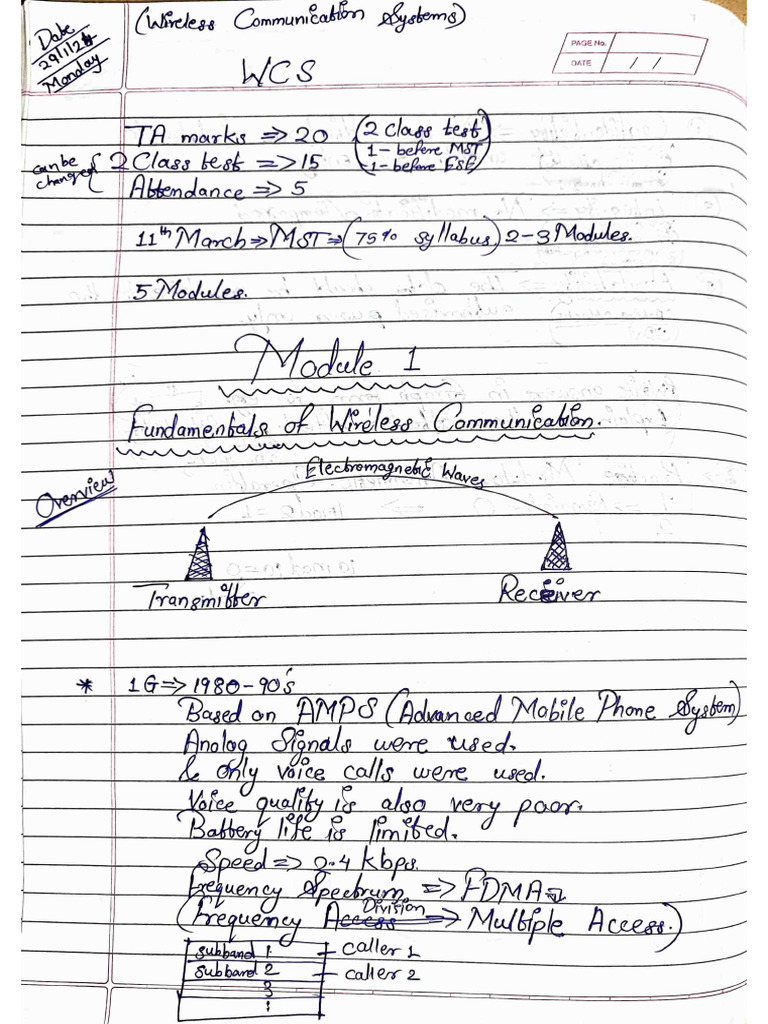 (Wireless Communication Systems)
Date
29/1/24
Monday
PAGE No.
DATE / /
WCS
TA marks => 20 (2 Class test
1 - before MST
- 1 - before ESE)
can be changed { 2 Class test => 15
Attendance => 5
11th March => MST => (75% syllabus) 2-3 Modules.
5 Modules.
Module 1
Fundamentals of Wireless Communication.
Overview
Electromagnetic Waves
Transmitter
Receiver
* 1G => 1980-90's
Based on AMPS (Advanced Mobile Phone System)
Analog Signals were used.
& only voice calls were used.
Voice quality is also very poor.
Battery life is limited.
Speed => 2.4 kbps.
Frequency Spectrum => FDMA
(Frequency Access Division => Multiple Access.)
subband 1 - caller 1
subband 2 - caller 2
3